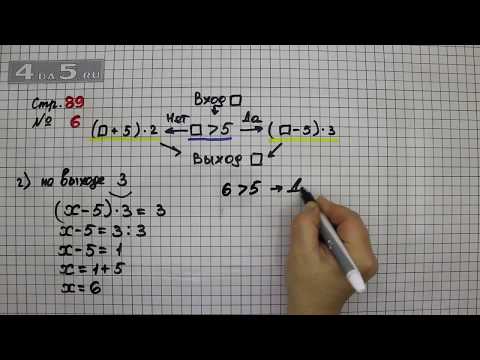 4 DA 5.RU
Стр. 89
№ 6
Вход □
(□ + 5) · 2 ← Нет □ > 5 Да → (□ - 5) · 3
Выход □
2) на выходе 3
(x - 5) · 3 = 3
x - 5 = 3 : 3
x - 5 = 1
x = 1 + 5
x = 6
6 > 5 → Д